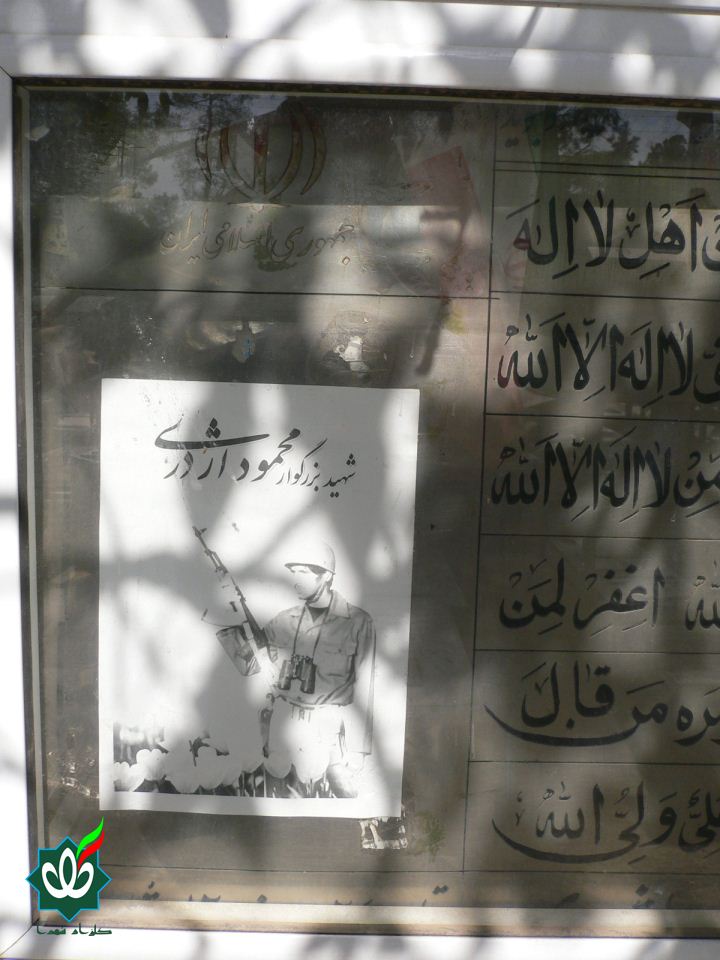 جمهوری اسلامی ایران
شهید بزرگوار محمود اژدری
اَهْلِ لا اِلهَ
لا اِلهَ اِلَّا اللهُ
مِنْ لا اِلهَ اِلَّا اللهُ
اغْفِرْ لِمَنْ
مَنْ قالَ
وَلِیُّ الله